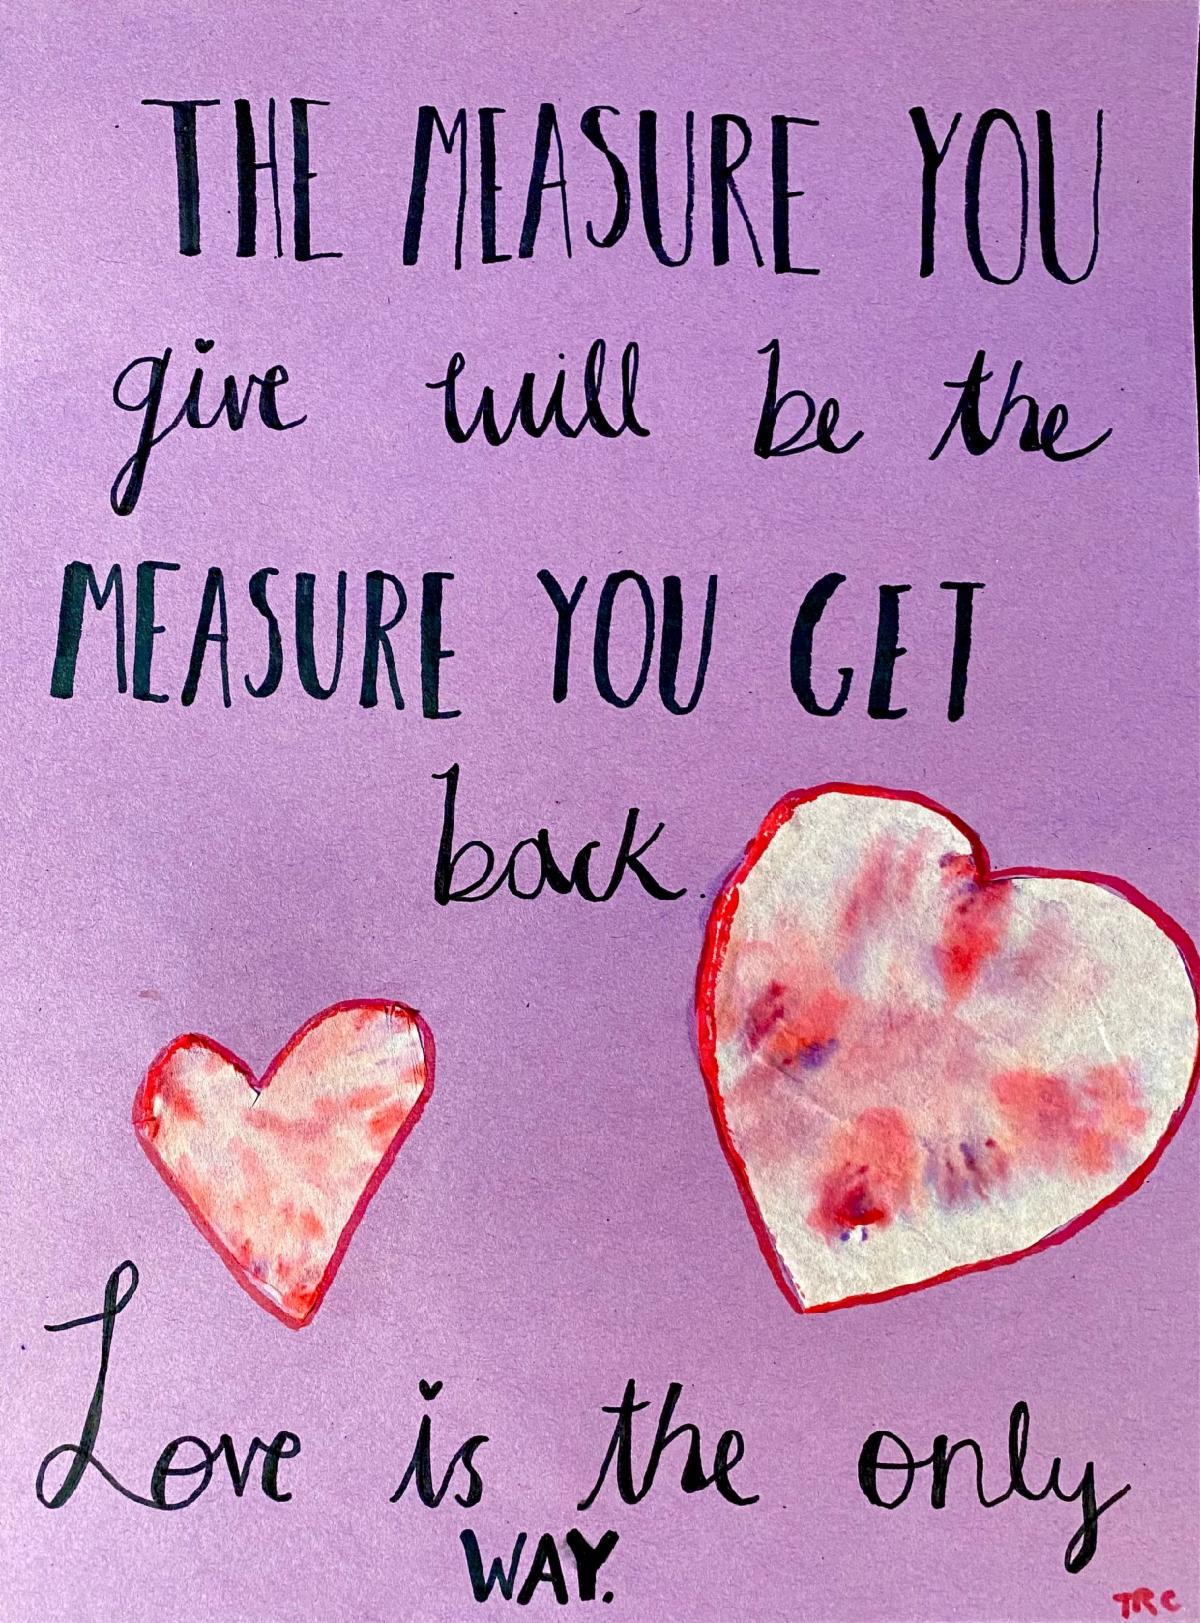 THE MEASURE YOU
give will be the
MEASURE YOU GET
back.
Love is the only
WAY.
TRC